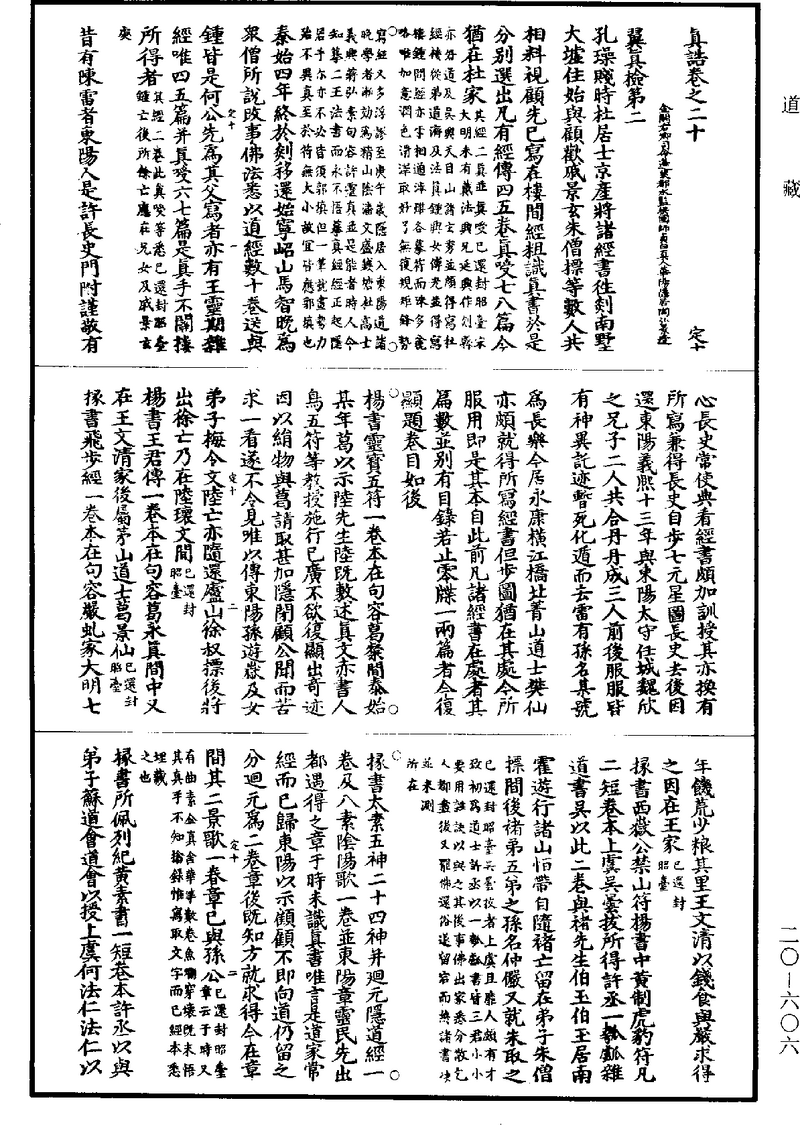 道藏
二〇—六〇六
真誥卷之二十 定十
翼真檢第二
孔璪賤時杜居士京產將諸經書往剡南墅
大墟住始與顧歡戚景玄朱僧摽等數人共
相料視顧先已寫在樓間經粗識真書於是
分別選出凡有經傳四五卷真㕮七八篇今
猶在杜家
泰始四年終於剡移還始寧㟭山馬智晚為
衆僧所說改事佛法悉以道經數十卷送與
鍾皆是何公先為其父寫者亦有王靈期雜
經唯四五篇并真㕮六七篇是真手不關樓
所得者
昔有陳雷者東陽人是許長史門附謹敬有
心長史常使典看經書頗加訓授其亦換有
所寫兼得長史自步七元星圖長史去後因
還東陽義熙十三年與東陽太守任城魏欣
之兄子二人共合丹丹成三人前後服服皆
有神異託迹暫死化遁而去雷有孫名某號
為長樂今居永康橫江橋北菁山道士樊仙
亦頗就得所寫經書但步圖猶在其處今所
服用即是其本自此前凡諸經書在處者其
篇數並別有目錄若止零牒一兩篇者今復
顯題卷目如後
楊書靈寶五符一卷本在句容葛粲間泰始
某年葛以示陸先生陸既敷述真文赤書人
鳥五符等教授施行已廣不欲復顯出奇迹
因以絹物與葛請取甚加隱閉顧公聞而苦
求一看遂不令見唯以傳東陽孫遊嶽及女
弟子梅令文陸亡亦隨還廬山徐叔摽後將
出徐亡乃在陸瓌文間 已還封昭臺
楊書王君傳一卷本在句容葛永真間中又
在王文清家後屬茅山道士葛景仙 已還封昭臺
掾書飛步經一卷本在句容嚴虬家大明七
年饑荒少粮其里王文清以錢食與嚴求得
之因在王家 已還封昭臺
掾書西嶽公禁山符楊書中黃制虎豹符凡
二短卷本上虞吳曇拔所得許丞一瓠𤬛雜
道書吳以此二卷與褚先生伯玉伯玉居南
霍遊行諸山恒帶自隨褚亡留在弟子朱僧
摽間後褚第五弟之孫名仲儼又就朱取之
掾書太素五神二十四神并迴元隱道經一
卷及八素陰陽歌一卷並東陽章靈民先出
都遇得之章于時未識真書唯言是道家常
經而已歸東陽以示顧顧不即向道仍留之
分迴元為二卷章後既知方就求得今在章
間其二景歌一卷章已與孫公
掾書所佩列紀黃素書一短卷本許丞以與
弟子蘇道會道會以授上虞何法仁法仁以